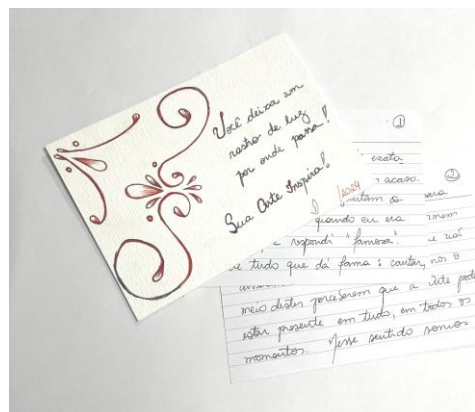 Você deixa um
rastro de luz
por onde passa!
Sua Arte Inspira!
1
exata
acaso.
2024
quando eu era
respondi "famosa".
tudo que dá fama: cantar,
2
meio destes perceberem que a Arte pode
estar presente em tudo, em todos os
momentos. Nesse sentido somos